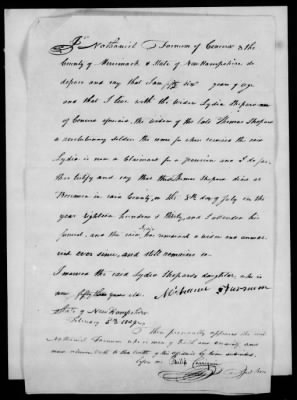 I Nathaniel Farnum of Concord & the
County of Merrimack & State of New Hampshire do
depose and say that I am six years of age
and that I live with the widow Lydia Shepard
of Concord aforesaid, the widow of the late Thomas Shepard
a revolutionary soldier the same for whose services the said
Lydia is now a Claimant for a pension and I do far-
ther certify and say that the Thomas Shepard died at
in said County, on the 8th day of July in the
year eighteen hundred & thirty, and I attended his
funeral, and the said Lydia has remained a widow and unmar
ried ever since, and still remains so.
I married the said Lydia Shepards daughter, who is
now fifty three years old. Nathaniel Farnum
State of New Hampshire
February 5th
then personally appeared the said
Nathaniel Farnum who is a man of truth and veracity and
made oath to the truth of the affidavit by him subscribed
before me